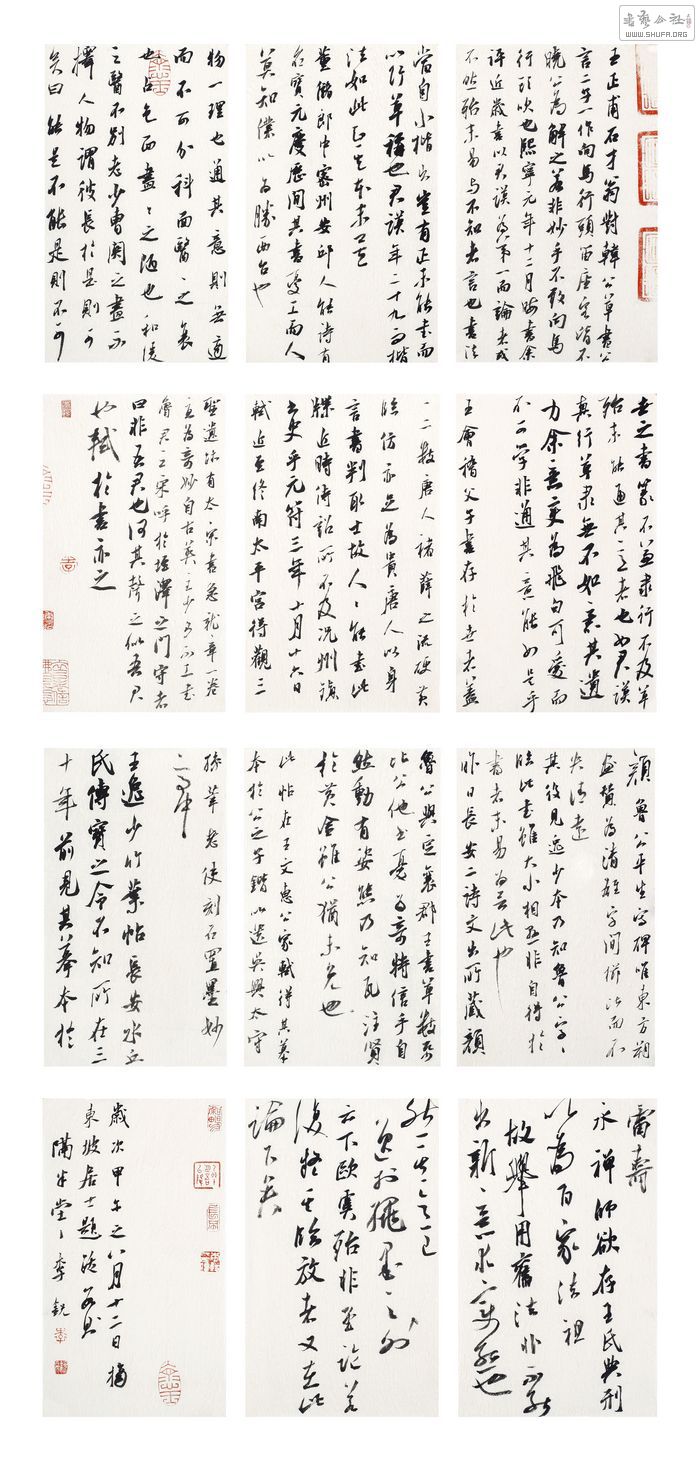 書藝公社
WWW.SHUFA.ORG
王正甫石才翁對韓公草書公
言二子一作向馬行頭笛座客皆不
曉公為解之若非妙手不敢向馬
行頭吹也熙寧元年十二月晦書余
評近歲書以君謨為第一而論者或
不然殆未易與不知者言也書法
當自小楷出豈有正未能書而
以行草稱也君謨年二十九而楷
法如此知其本末矣
董儲郎中密州安邱人能詩有
名寶元慶曆間其書尤工而人
莫知僕以為勝西台也
物一理也通其意則無適
而不可分科而醫醫之衰
也占色而畫畫之陋也和緩
之醫不別老少曹吳之畫不
擇人物謂彼長於是則可
矣曰能是不能是則不可
世之書篆不兼隸行不及草
殆未能通其意者也如君謨
真行草隸無不如意其遺
力余意變為飛白可愛而
不可學非通其意能如是乎
王會稽父子書存於世者蓋
一二數唐人褚薛之流硬黃
臨仿亦足為貴唐人以身
言書判取士故人人能書此
牒近時待詔所不及況州鎮
書史乎元符三年十月十六日
軾近至終南太平宮得觀三
聖遺跡有太宗書急就章一卷
為奇妙自古英主少有不工書
魯君之宋呼於垤澤之門守者
曰非吾君也何其聲之似吾君
也軾於書亦云
顏魯公平生寫碑唯東方朔
畫贊為清雄字間櫛比而不
失清遠
其後見逸少本乃知魯公字字
臨此書雖大小相懸非自得於
書者未易為言此也
昨日長安二詩文出所藏顏
魯公與定襄郡王書草數紙
比公他書尤為奇特信手自
然動有姿態乃知瓦注賢
於黃金雖公猶未免也
此帖在王文惠公家軾得其摹
本於公之子鍇以遺吳興太守
孫莘老使刻石置墨妙
亭中
王逸少竹葉帖長安水丘
氏傳寶之今不知所在三
十年前見其摹本於
雷壽
永禪師欲存王氏典刑
以為百家法祖
故舉用舊法非不能
出新意求變態也
然其意已
逸於繩墨之外
云下歐虞殆非至論若
復疑其臨放者又在此
論下矣
歲次甲午之八月十二日摘
東坡居士題跋數則
李銳